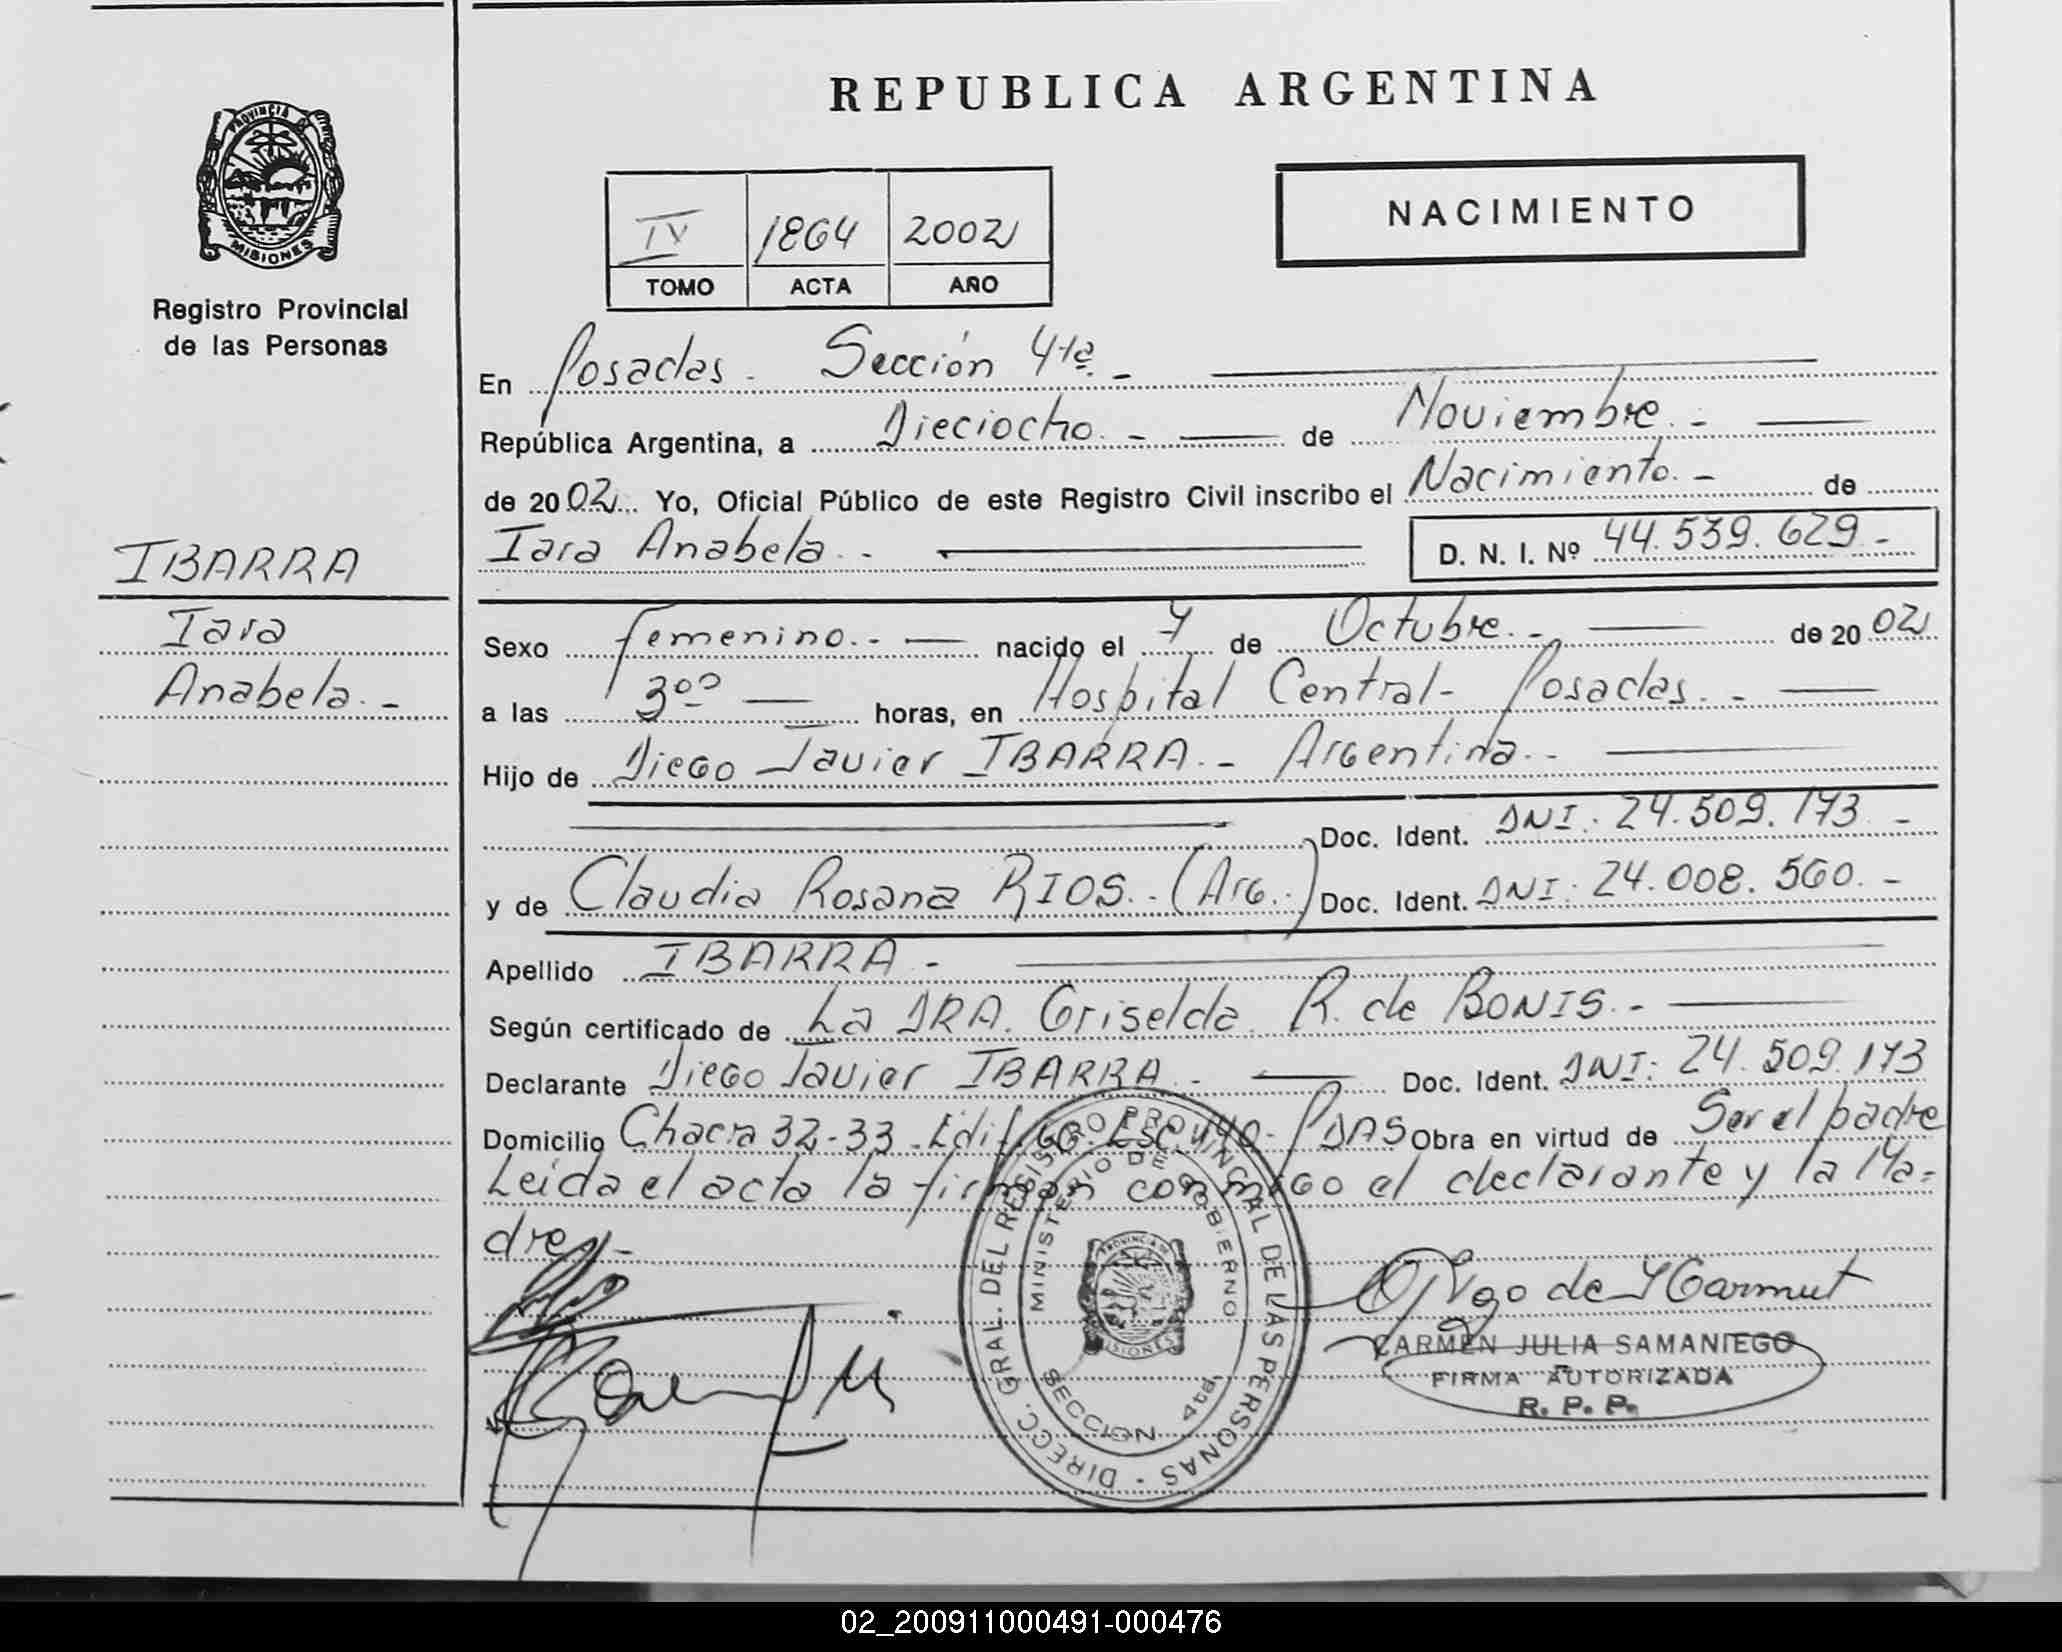 REPUBLICA ARGENTINA
PROVINCIA DE
MISIONES
Registro Provincial
de las Personas
NACIMIENTO
IV 1864 2002
TOMO ACTA AÑO
En Posadas. Sección 4ta. -
República Argentina, a Dieciocho. - de Noviembre. -
de 2002 Yo, Oficial Público de este Registro Civil inscribo el Nacimiento. - de
Iara Anabela. - D. N. I. Nº 44.539.629. -
IBARRA
Iara
Anabela. -
Sexo femenino. - nacido el 7 de Octubre. - de 2002
a las 3⁰⁰ horas, en Hospital Central - Posadas. -
Hijo de Diego Javier IBARRA. - Argentina. -
Doc. Ident. DNI: 24.509.173 -
y de Claudia Rosana RIOS. - (Arg.) Doc. Ident. DNI: 24.008.560. -
Apellido IBARRA. -
Según certificado de La DRA. Griselda R. de BONIS. -
Declarante Diego Javier IBARRA. - Doc. Ident. DNI: 24.509.173
Domicilio Chacra 32-33 - Edif. Esc. - PDAS Obra en virtud de Ser el padre
Leida el acta la firman conmigo el declarante y la Ma=
dre. -
DIRECC. GRAL. DEL REGISTRO PROVINCIAL DE LAS PERSONAS -
MINISTERIO DE GOBIERNO
PROVINCIA DE
MISIONES
SECCION 4ta
CARMEN JULIA SAMANIEGO
FIRMA AUTORIZADA
R. P. P.
02_200911000491-000476